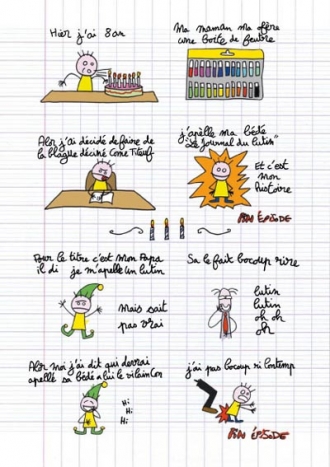 Hier j'ai 8 an
Ma maman ma offère
une boite de feutre
Alor j'ai décidé de faire de
la blague déciné come Titeuf
j'apèlle ma bédé
"Le Journal du lutin"
Et c'est
mon
histoire
FIN ÉPISODE
Pour le titre c'est mon Papa
il di je m'apelle un lutin
mais sait
pas vrai
Sa le fait bocoup rire
lutin
lutin
oh oh
oh
Alor moi j'ai dit qui devrai
apellé sa bédé a lui le vilain con
Hi
Hi
Hi
j'ai pas bocoup ri lontemp
FIN ÉPISODE